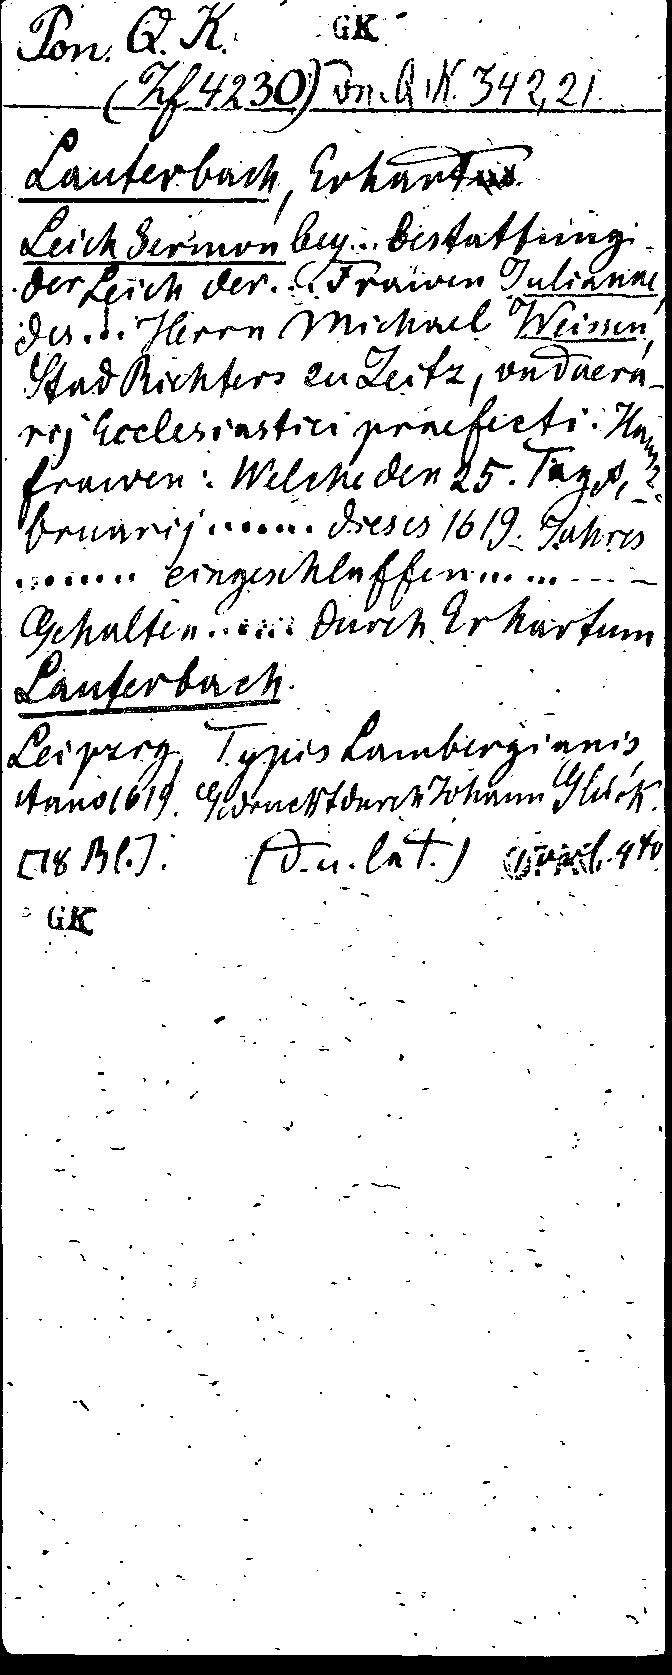 Pon. Q. K. GK
(Zf 4230) Pon. Q. K. 342, 21
Lauterbach, Erhart
Leich Sermon bey... bestattung
der Leich der... Frawen Julianae,
des... Herrn Michael Weissen,
Stad Richters zu Zeitz, vnd aera-
rij Ecclesiastici praefecti. Hauß-
frawen: Welche den 25. Tag Fe-
bruarij ...... dieses 1619. Jahres
...... eingeschlaffen ......
Gehalten ...... durch Erhartum
Lauterbach.
Leipzig, Typis Lambergianis,
Anno 1619. Gedruckt durch Johann Glück.
[18 Bl.]. (d. u. lat.)
GK